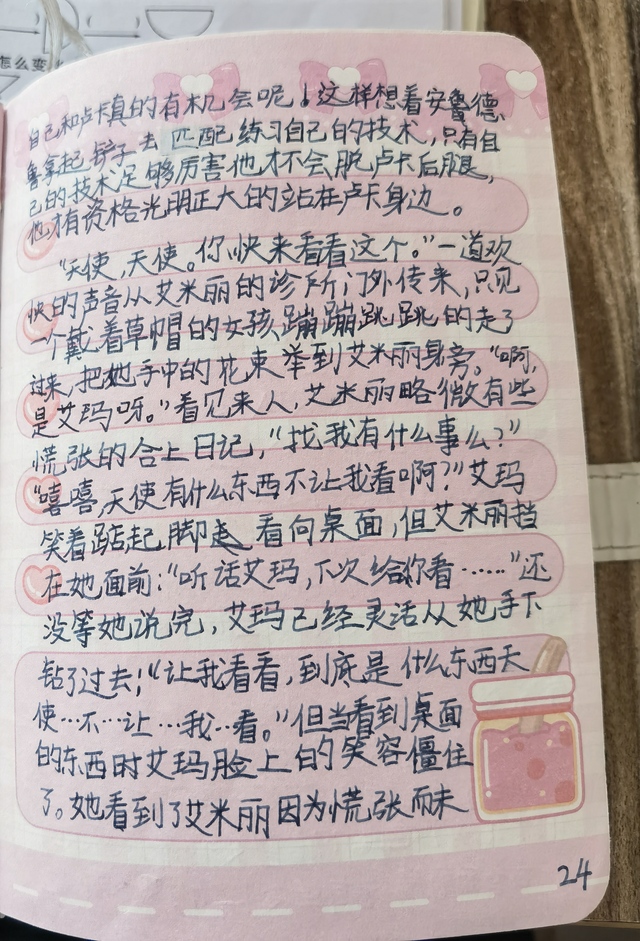 怎么变
自己和卢卡真的有机会呢！这样想着安鲁德、
鲁拿起铲子去匹配练习自己的技术，只有自
己的技术足够厉害他才不会脱卢卡后腿，
他才有资格光明正大的站在卢卡身边。
“天使，天使。你快来看看这个。”一道欢
快的声音从艾米丽的诊所门外传来，只见
一个戴着草帽的女孩蹦蹦跳跳的走了
过来，把她手中的花束举到艾米丽身旁。“啊，
是艾玛呀。”看见来人，艾米丽略微有些
慌张的合上日记，“找我有什么事么？”
“嘻嘻，天使有什么东西不让我看啊？”艾玛
笑着踮起脚 看向桌面，但艾米丽挡
在她面前：“听话艾玛，下次给你看……”还
没等她说完，艾玛已经灵活从她手下
钻了过去；“让我看看，到底是什么东西天
使…不…让…我…看。”但当看到桌面
的东西时艾玛脸上的笑容僵住
了。她看到了艾米丽因为慌张而未
24